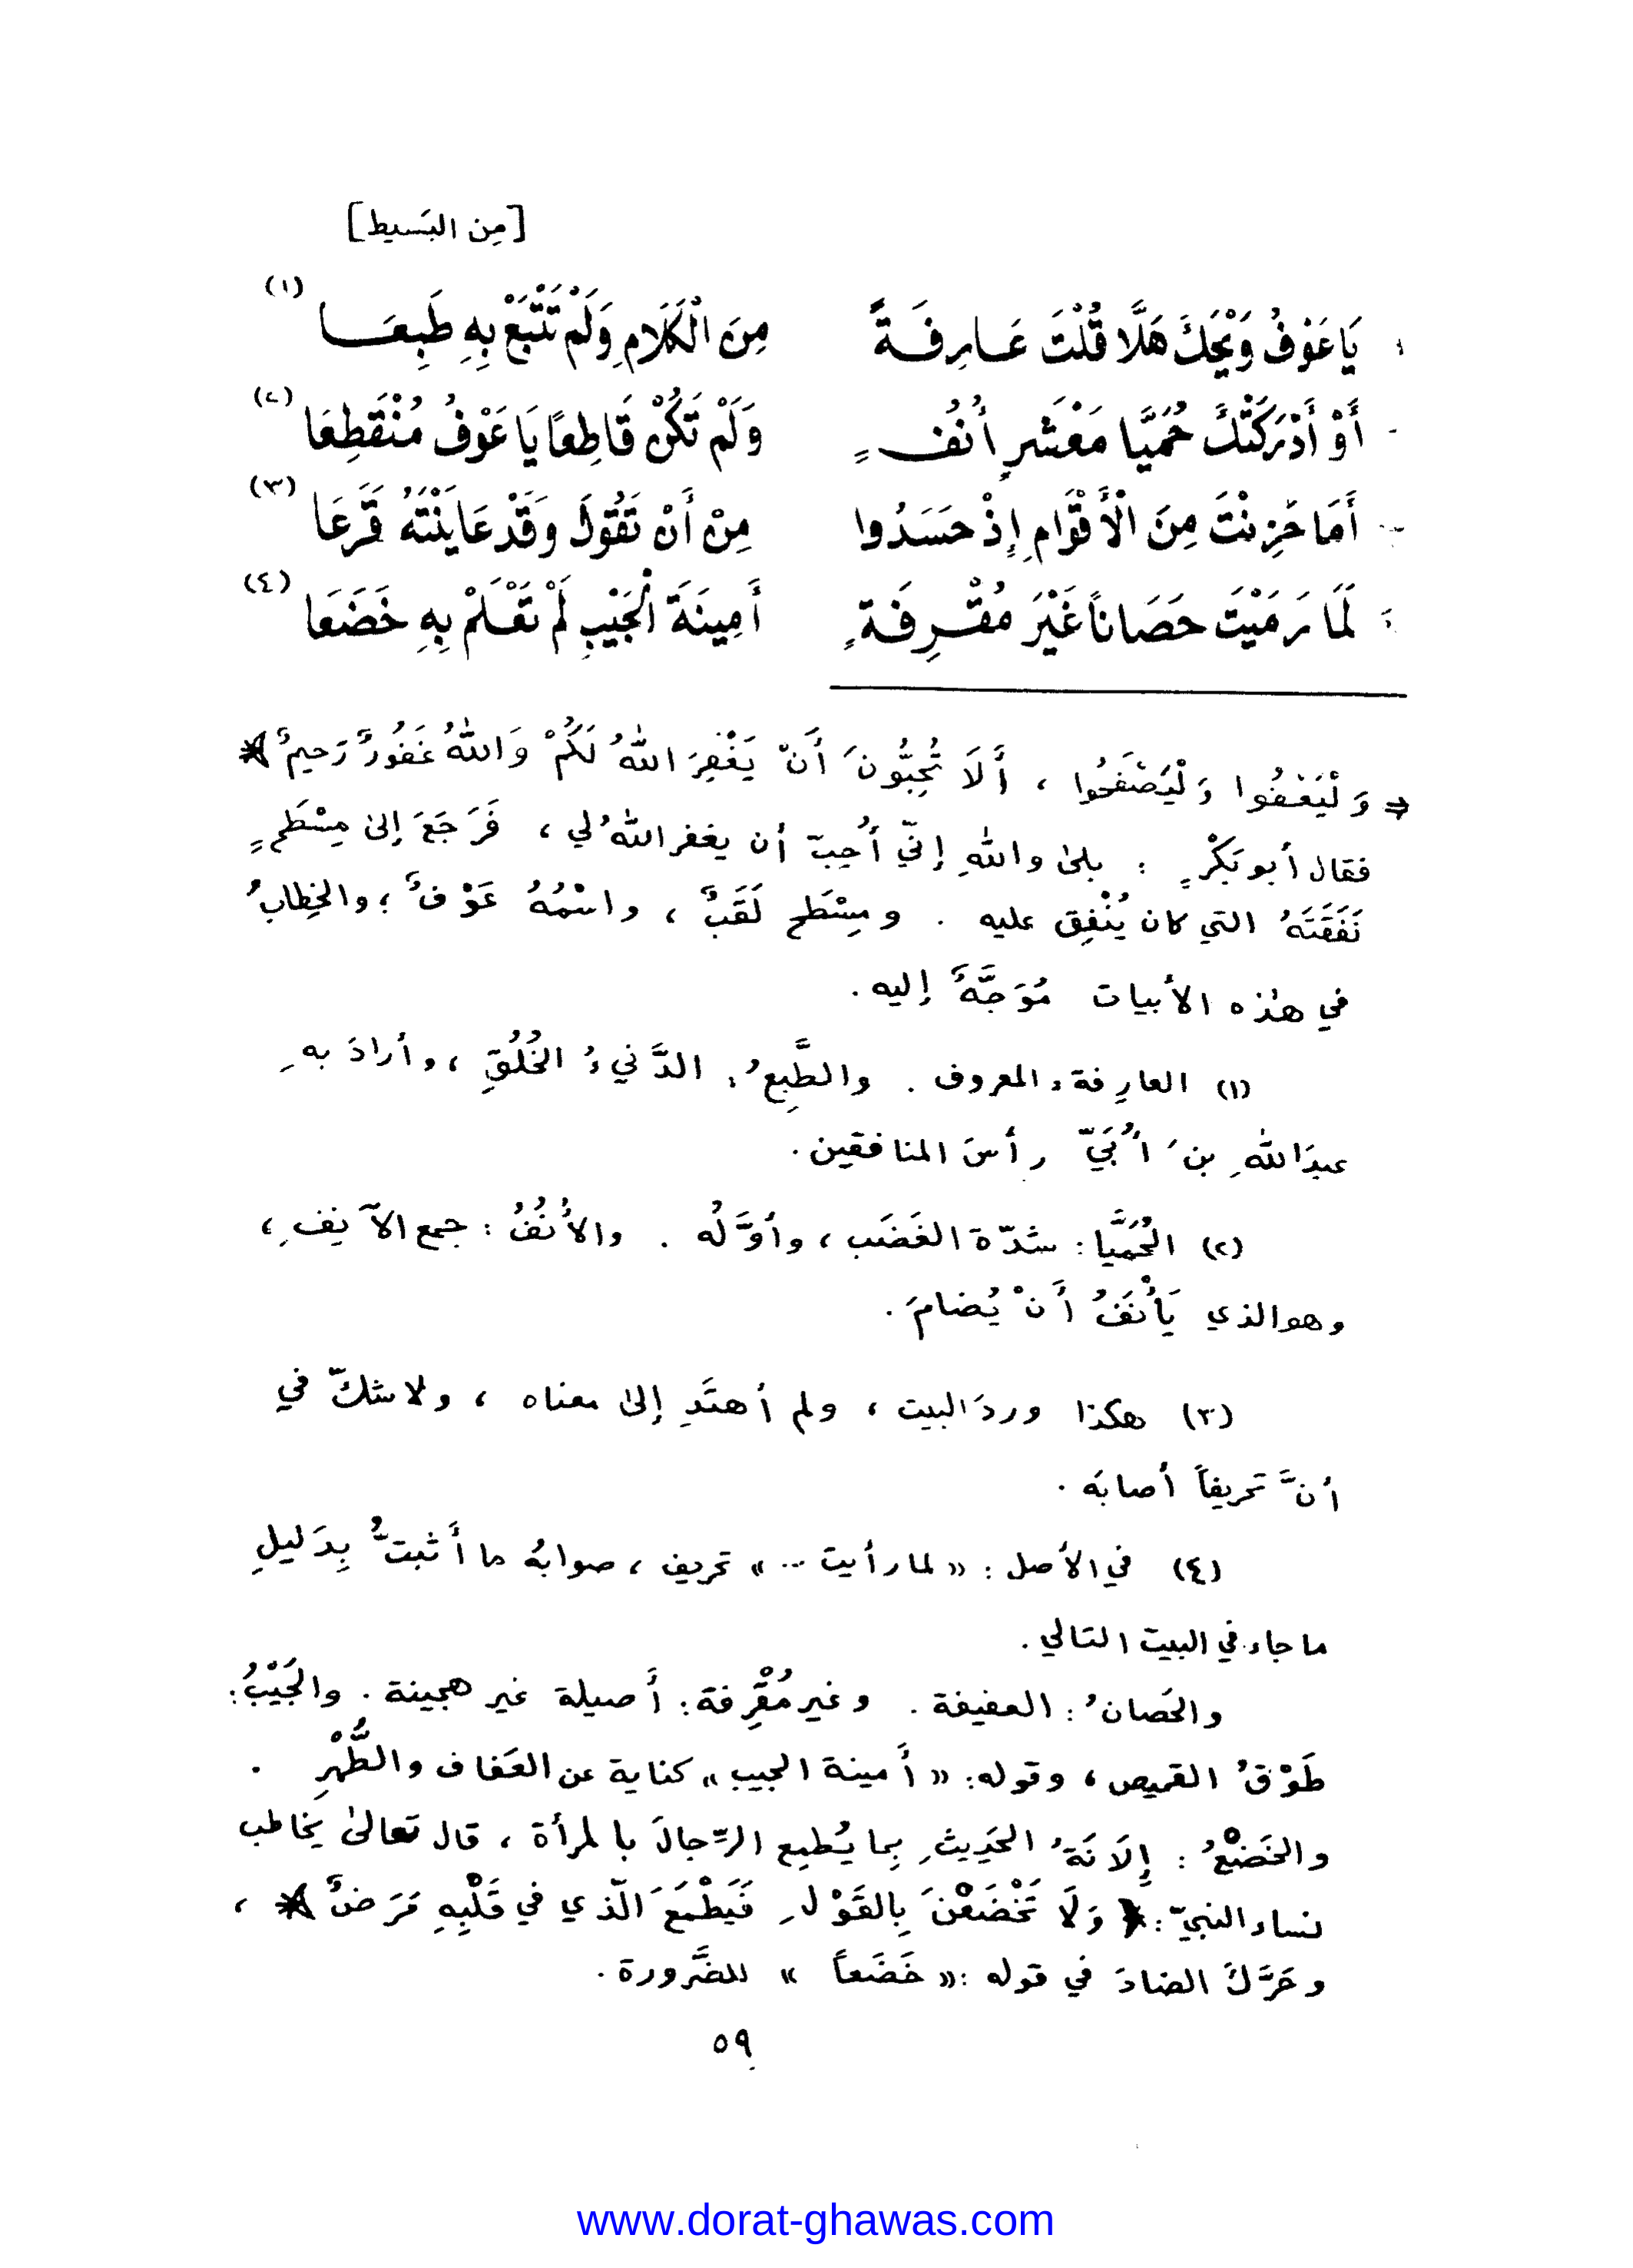 [مِن البَسيط]
١ يَا عَوْفُ وَيْحَكَ هَلَّا قُلْتَ عَـارِفَـةً مِنَ الْكَلَامِ وَلَمْ تَتْبَعْ بِهِ طَبِعَـــا (١)
- أَوْ أَدْرَكَتْكَ حُمَيَّا مَعْشَرٍ أُنُفٍ وَلَمْ تَكُنْ قَاطِعًا يَا عَوْفُ مُنْقَطِعَا (٢)
أَمَا حَزِنْتَ مِنَ الْأَقْوَامِ إِذْ حَسَدُوا مِنْ أَنْ تَقُولَ وَقَدْ عَايَنْتَهُ قَرَعَا (٣)
٤ لَمَّا رَمَيْتَ حَصَانًا غَيْرَ مُقْـرِفَـةٍ أَمِينَةَ الْجَيْبِ لَمْ تَعْـلَمْ بِهِ خَضَعَا (٤)
= وَلْيَعْفُوا وَلْيَصْفَحُوا ، أَلَا تُحِبُّونَ أَنْ يَغْفِرَ اللهُ لَكُمْ وَاللهُ غَفُورٌ رَحيمٌ ﴾
فقال أبو بَكْرٍ : بلىٰ واللهِ إنّي أُحِبّ أن يغفر اللهُ لي ، فَرَجَعَ إلىٰ مِسْطَحٍ
نَفَقَتَهُ التي كان يُنْفِق عليه . ومِسْطَح لَقَبٌ ، واسْمُهُ عَوْفٌ ؛ والخِطابُ
في هٰذه الأبيات مُوَجَّهٌ إليه .
(١) العارِفة : المعروف . والطَّبِعُ : الدَّنيءُ الخُلُقِ ، وأرادَ بهِ
عبدَ اللهِ بنَ أُبَيّ رأسَ المنافقين .
(٢) الحُمَيَّا : شدّة الغَضَب ، وأوَّلُه . والأُنُفُ : جمع الآنِفِ ،
وهو الذي يَأْنَفُ أَنْ يُضامَ .
(٣) هكذا وردَ البيت ، ولم أهتَدِ إلىٰ معناه ، ولا شكّ في
أنَّ تحريفاً أصابَه .
(٤) في الأصل : « لما رأيت .. » تحريف ، صوابُه ما أَثبتُّ بِدَليلِ
ما جاء في البيت التالي .
والحَصانُ : العفيفة . وغير مُقْرِفة : أَصيلة غير هجينة . والجَيْبُ :
طَوْقُ القميص ، وقوله : « أَمينة الجيب » كناية عن العَفاف والطُّهْرِ .
والخَضْعُ : إِلَانَةُ الحَدِيثِ بِما يُطمِع الرِّجالَ بالمرأة ، قال تعالىٰ يخاطب
نساء النبيّ : ﴿ وَلَا تَخْضَعْنَ بِالقَوْلِ فَيَطْمَعَ الّذي في قَلْبِهِ مَرَضٌ ﴾ ،
وحَرَّكَ الضادَ في قوله : « خَضَعاً » للضَّرورة .
٥٩
www.dorat-ghawas.com